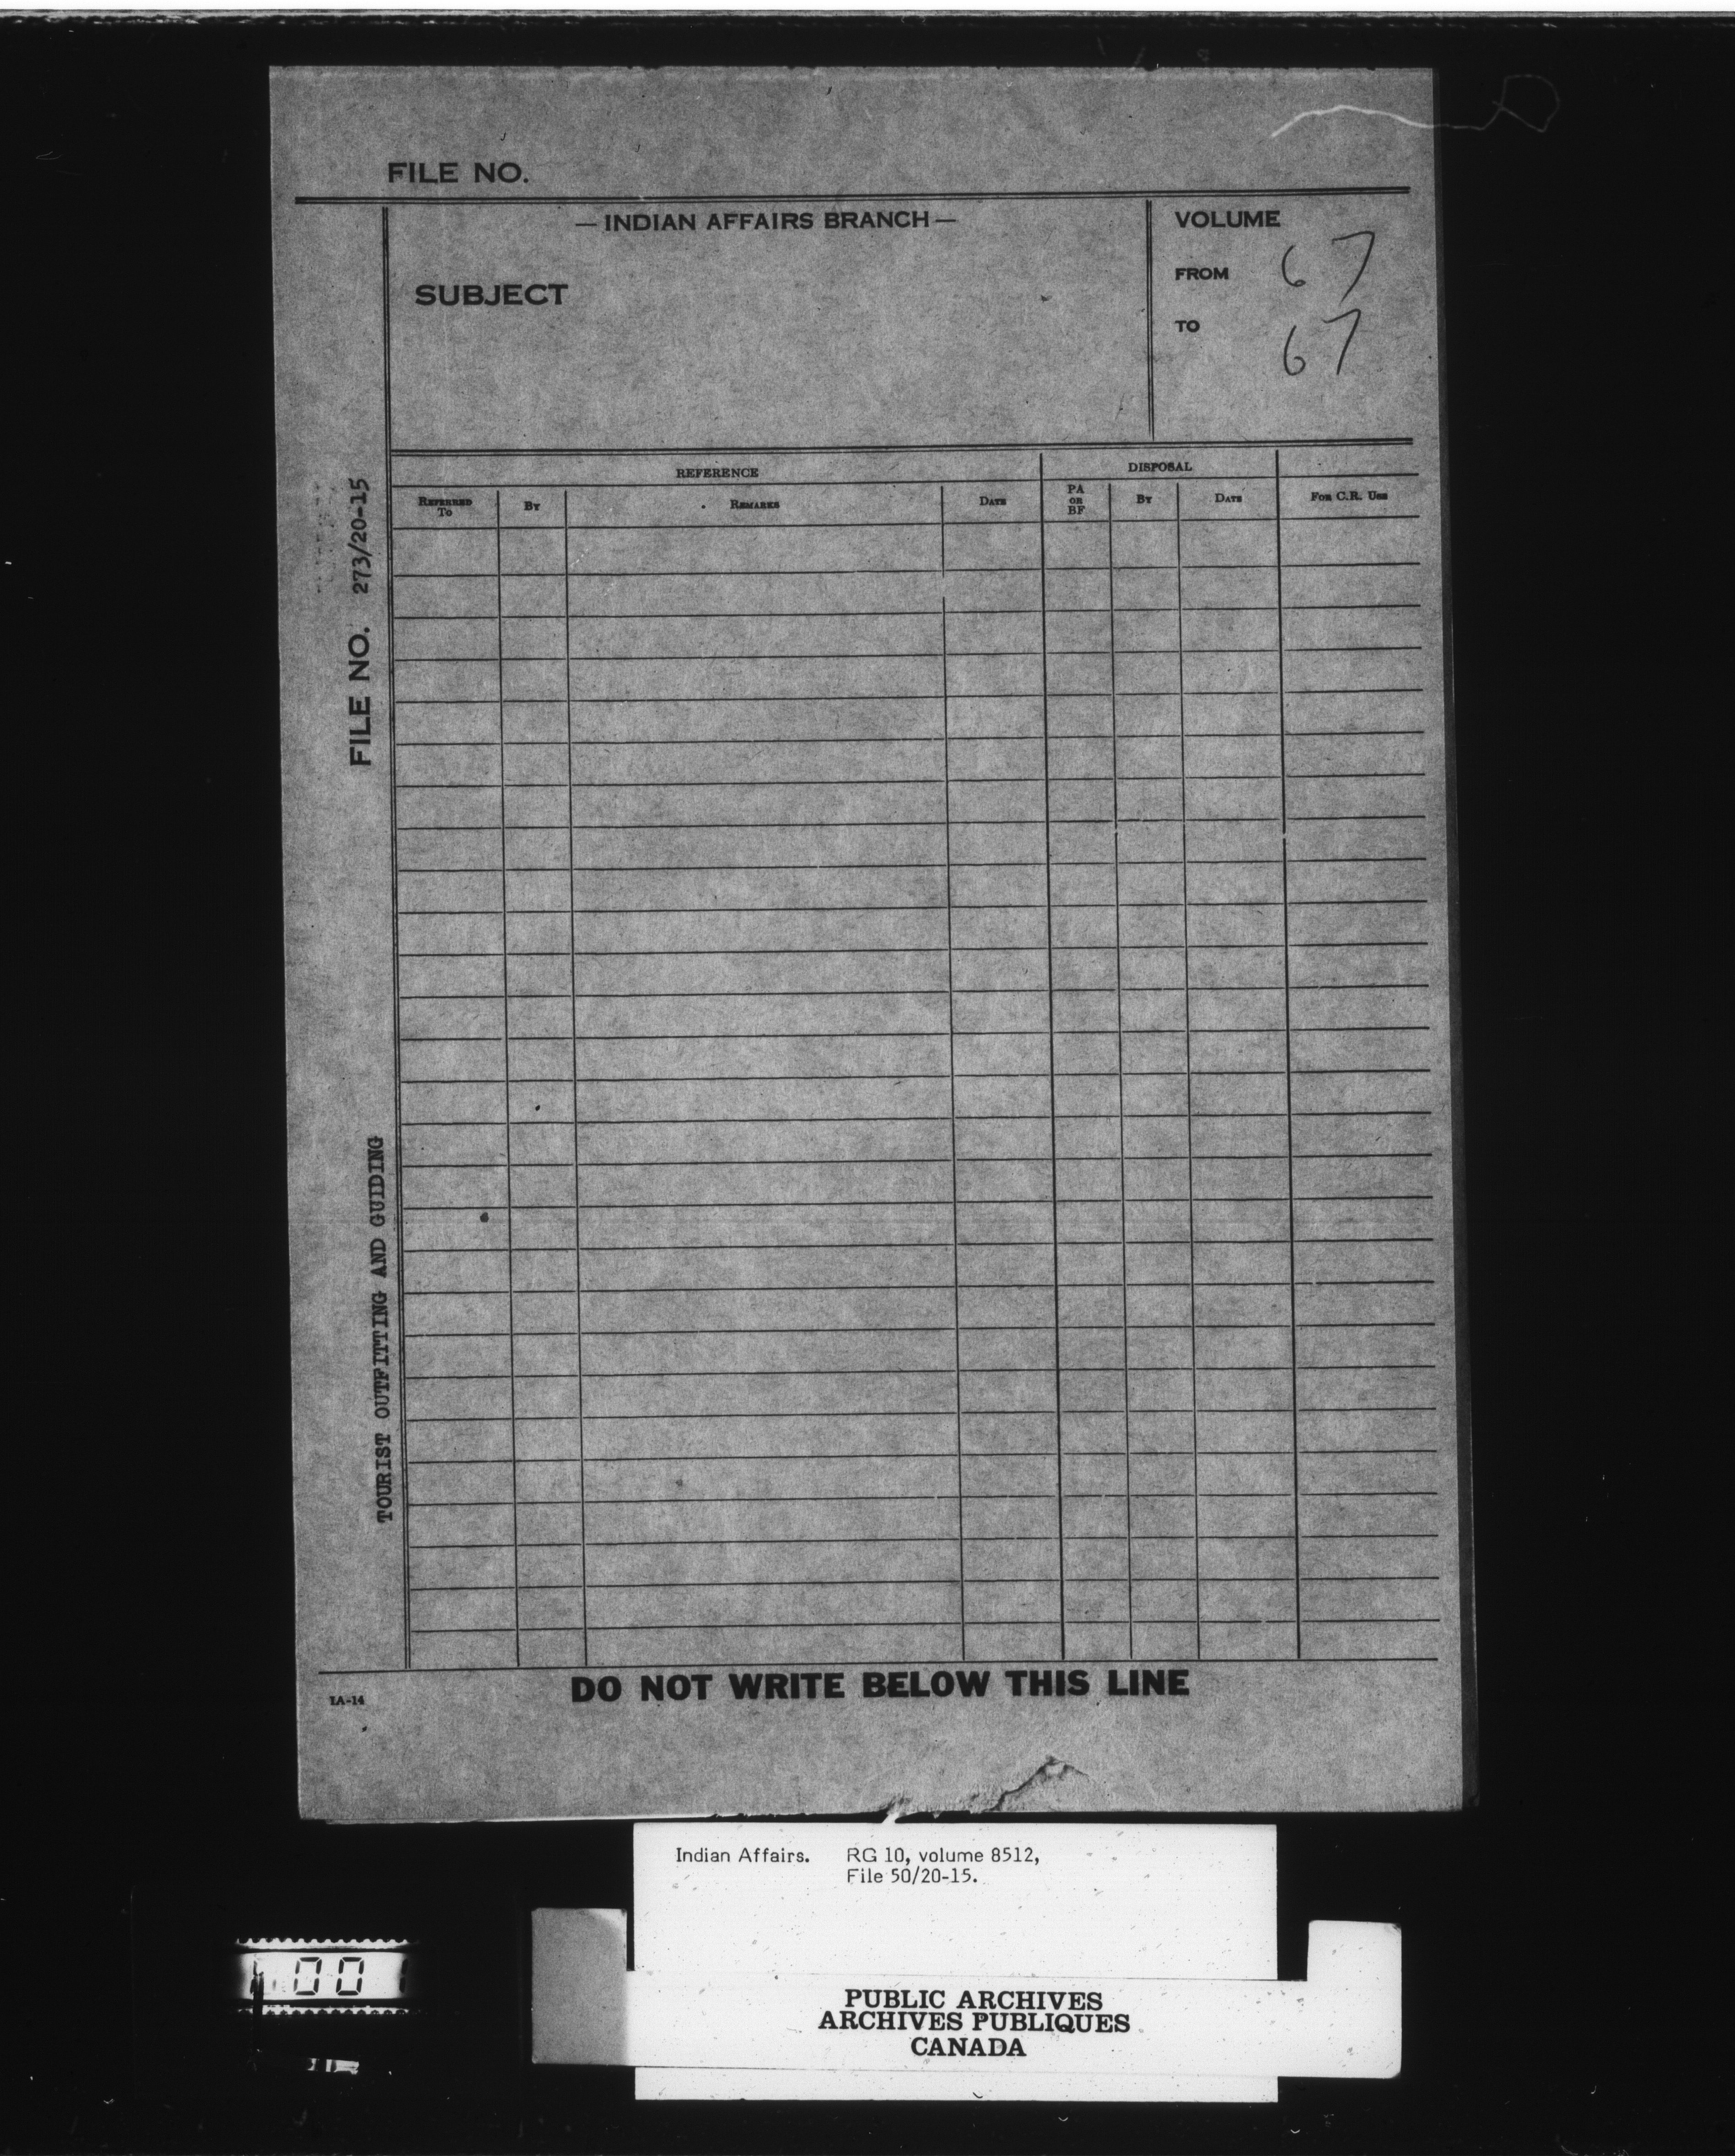 FILE NO.
— INDIAN AFFAIRS BRANCH —
SUBJECT
VOLUME
FROM 67
TO 67
FILE NO. 273/20-15
TOURIST OUTFITTING AND GUIDING
REFERENCE
DISPOSAL
REFERRED TO
BY
REMARKS
DATE
PA OR BF
BY
DATE
FOR C.R. USE
DO NOT WRITE BELOW THIS LINE
IA-14
Indian Affairs. RG 10, volume 8512,
File 50/20-15.
PUBLIC ARCHIVES
ARCHIVES PUBLIQUES
CANADA